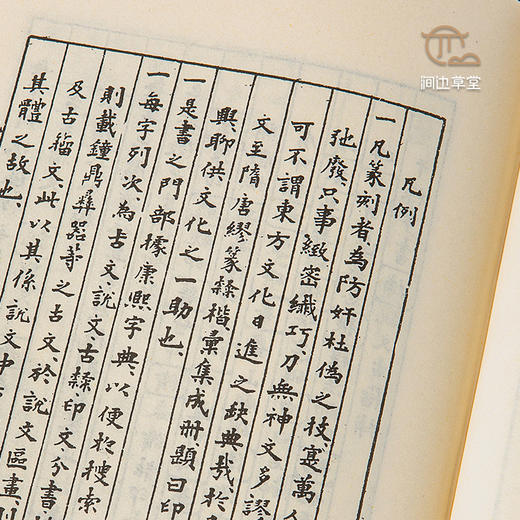 凡例
一凡篆刻者為防奸杜偽之技寔萬人
弛廢、只事緻密纖巧、刀無神文多謬
可不謂東方文化日進之缺典哉、於
文至隋唐繆篆隸楷彙集成冊題曰印
興、聊供文化之一助也、
一是書之門部據康熙字典、以便於搜索
一每字列次、為古文、說文、古隸、印文、分書
則載鐘鼎彝器等之古文、於說文區畫、則
及古籀文、此以其係說文中
其體之故也、
草堂